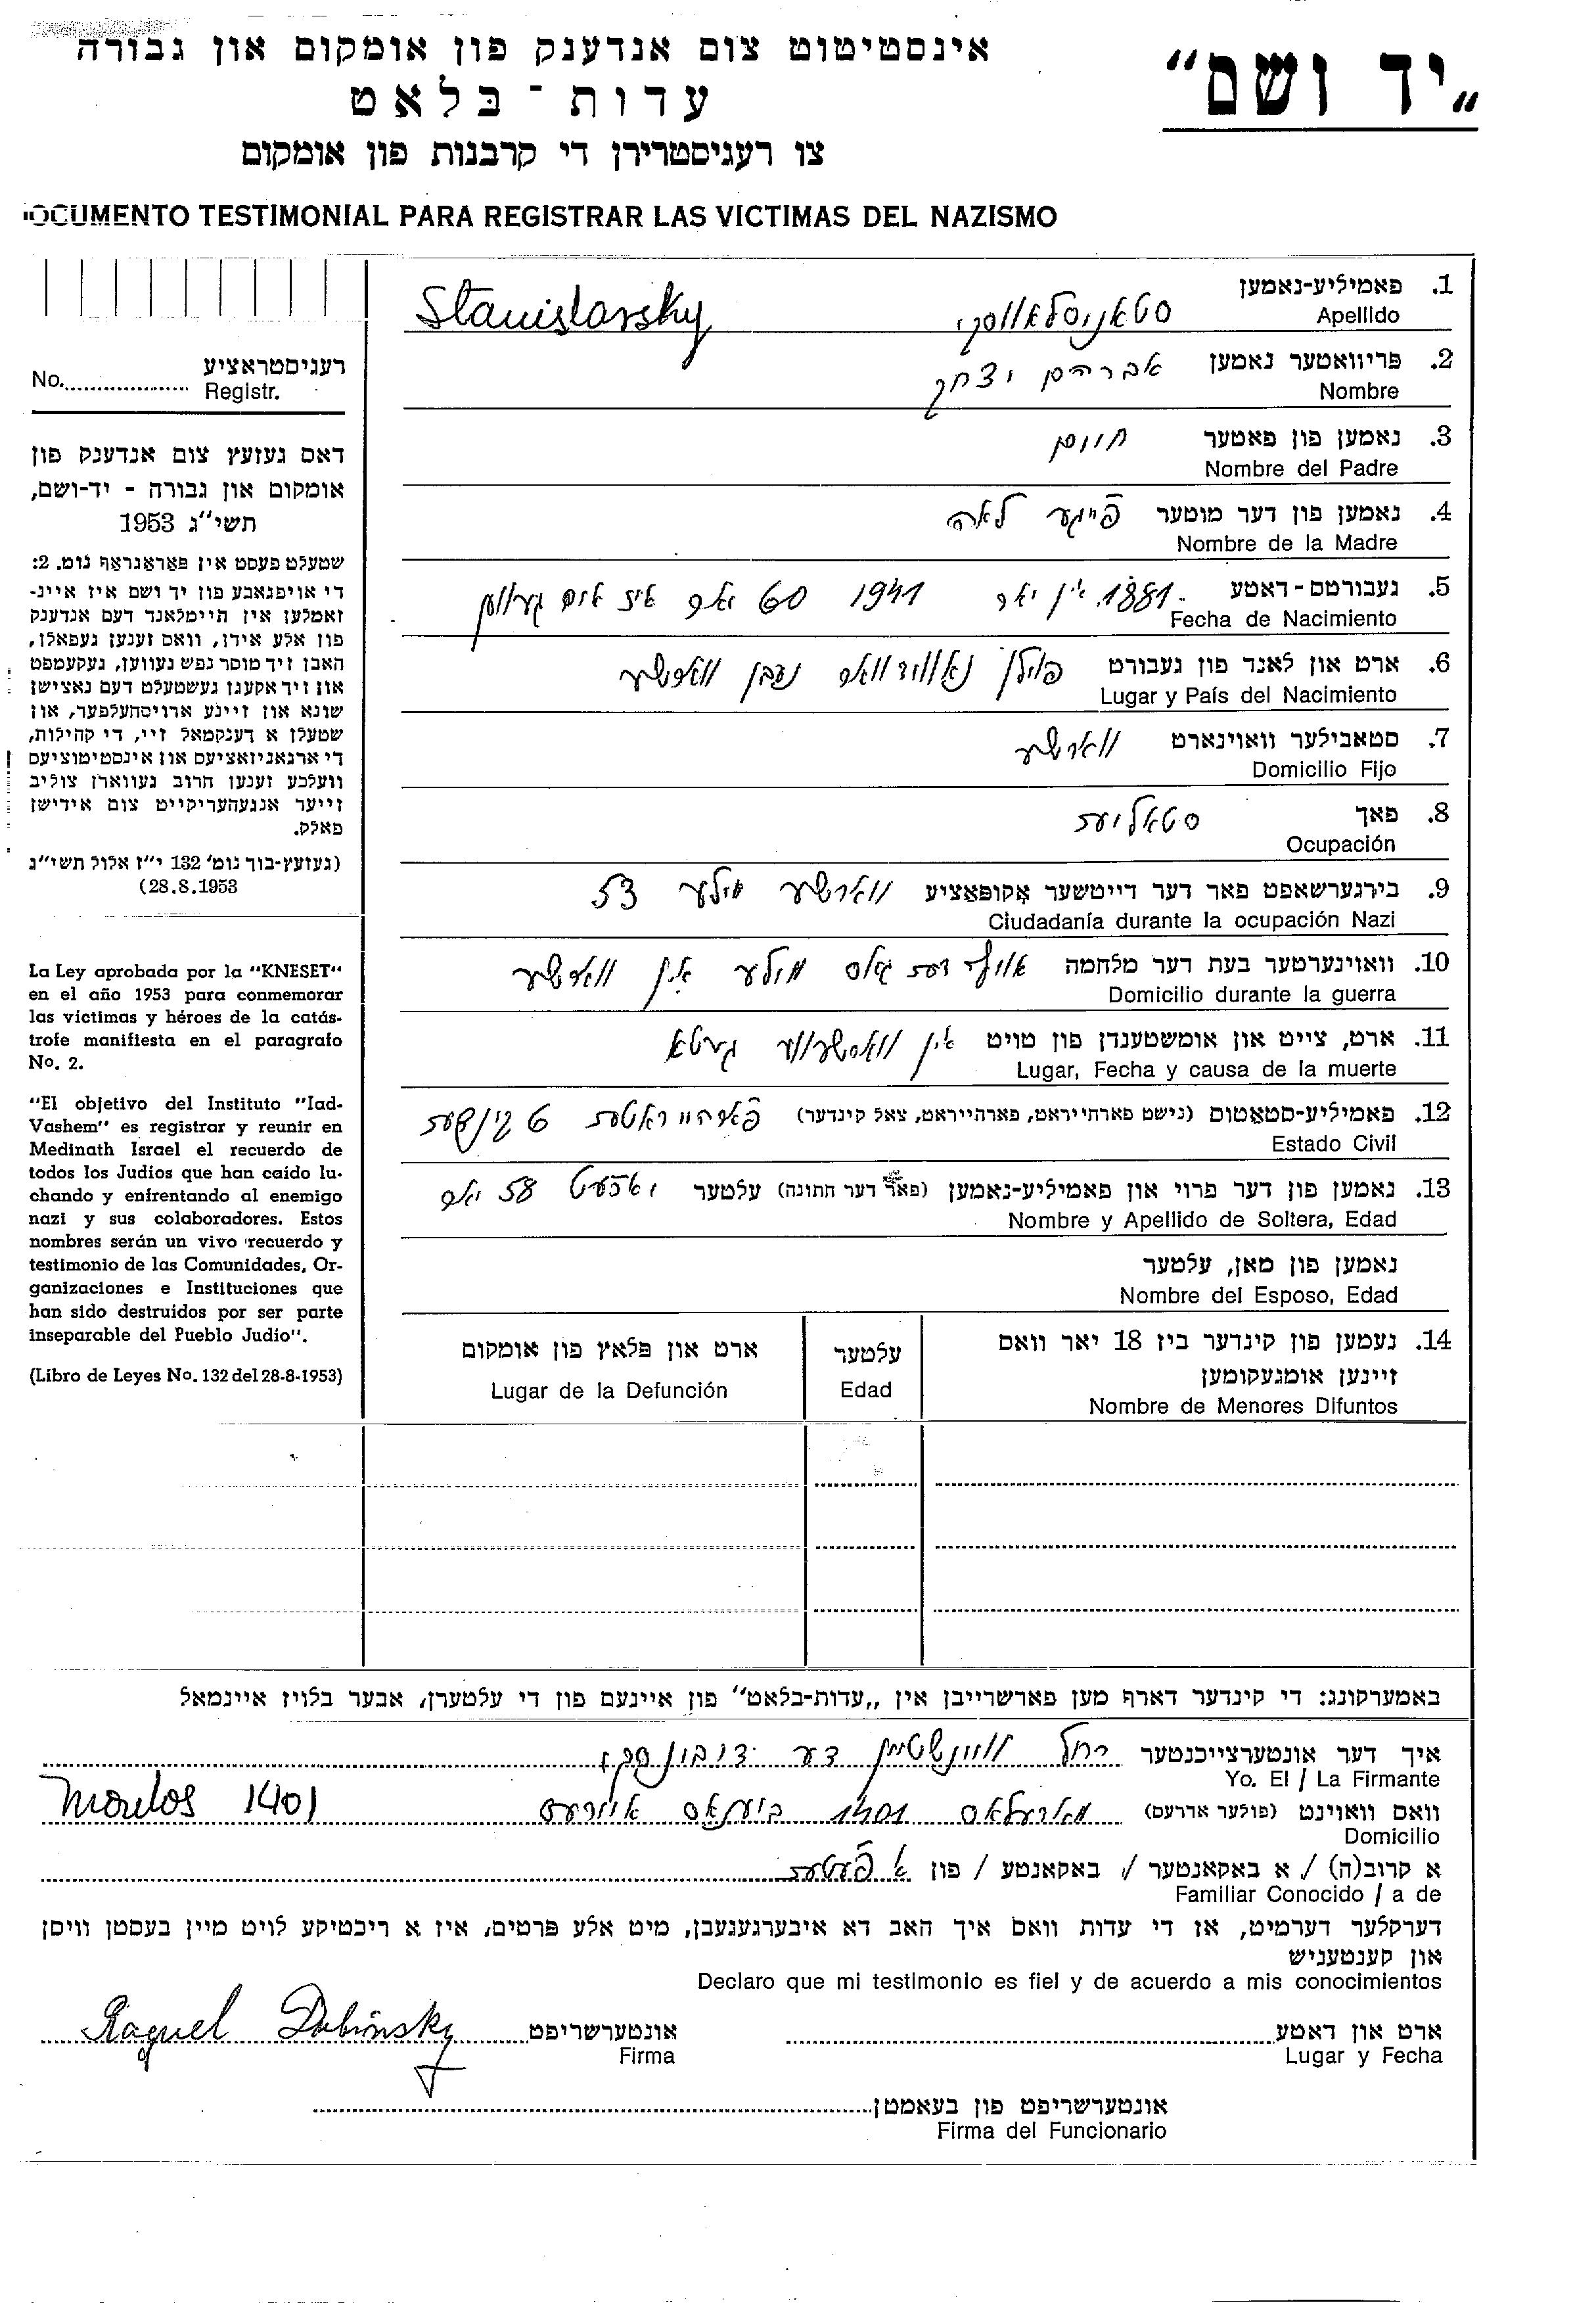 „יד ושם"
אינסטיטוט צום אנדענק פון אומקום און גבורה
עדות-בלאט
צו רעגיסטרירן די קרבנות פון אומקום
DOCUMENTO TESTIMONIAL PARA REGISTRAR LAS VICTIMAS DEL NAZISMO
No. .................... רעגיסטראציע
Registr.
דאס געזעץ צום אנדענק פון
אומקום און גבורה - יד-ושם,
תשי"ג 1953
שטעלט פעסט אין פאראגראף נומ. 2:
די אויפגאבע פון יד ושם איז איינ-
זאמלען אין היימלאנד דעם אנדענק
פון אלע אידן, וואס זענען געפאלן,
האבן זיך מוסר נפש געווען, געקעמפט
און זיך אקעגן געשטעלט דעם נאצישן
שונא און זיינע ארויסהעלפער, און
שטעלן א דענקמאל זיי, די קהילות,
די ארגאניזאציעס און אינסטיטוציעס
וועלכע זענען חרוב געווארן צוליב
זייער אנגעהעריקייט צום אידישן
פאלק.
(געזעץ-בוך נומ' 132 י"ז אלול תשי"ג
28.8.1953)
La Ley aprobada por la "KNESET"
en el año 1953 para conmemorar
las víctimas y héroes de la catás-
trofe manifiesta en el paragrafo
No. 2.
"El objetivo del Instituto "Iad-
Vashem" es registrar y reunir en
Medinath Israel el recuerdo de
todos los Judios que han caído lu-
chando y enfrentando al enemigo
nazi y sus colaboradores. Estos
nombres serán un vivo recuerdo y
testimonio de las Comunidades, Or-
ganizaciones e Instituciones que
han sido destruídos por ser parte
inseparable del Pueblo Judio".
(Libro de Leyes No. 132 del 28-8-1953)
1. פאמיליע-נאמען סטאניסלאווסקי Stanislavsky
Apellido
2. פריוואטער נאמען אברהם יצחק
Nombre
3. נאמען פון פאטער חיים
Nombre del Padre
4. נאמען פון דער מוטער פייגע לאה
Nombre de la Madre
5. געבורטס-דאטע 1881. אין יאר 1941 60 יאר איז אים געווען
Fecha de Nacimiento
6. ארט און לאנד פון געבורט פוילן נאווידוואר נעבן ווארשע
Lugar y País del Nacimiento
7. סטאבילער וואוינארט ווארשע
Domicilio Fijo
8. פאך סטאליער
Ocupación
9. בירגערשאפט פאר דער דייטשער אקופאציע ווארשע מילע 53
Ciudadanía durante la ocupación Nazi
10. וואוינערטער בעת דער מלחמה אויף דער גאס מילע אין ווארשע
Domicilio durante la guerra
11. ארט, צייט און אומשטענדן פון טויט אין ווארשעווער געטא
Lugar, Fecha y causa de la muerte
12. פאמיליע-סטאטוס (נישט פארהייראט, פארהייראט, צאל קינדער) פארהייראטעט 6 קינדער
Estado Civil
13. נאמען פון דער פרוי און פאמיליע-נאמען (פאר דער חתונה) עלטער 58 יאר
Nombre y Apellido de Soltera, Edad
נאמען פון מאן, עלטער
Nombre del Esposo, Edad
14. נעמען פון קינדער ביז 18 יאר וואס
זיינען אומגעקומען
Nombre de Menores Difuntos
עלטער
Edad
ארט און פלאץ פון אומקום
Lugar de la Defunción
באמערקונג: די קינדער דארף מען פארשרייבן אין „עדות-בלאט" פון איינעם פון די עלטערן, אבער בלויז איינמאל
איך דער אונטערצייכנטער רחל וויינשטיין דער דובינסקי
Yo. El / La Firmante
וואס וואוינט (פולער אדרעס) מארעלאס 1401 בוענאס איירעס Morelos 1401
Domicilio
א קרוב(ה) / א באקאנטער / באקאנטע / פון א פעטער
Familiar Conocido / a de
דערקלער דערמיט, אז די עדות וואס איך האב דא איבערגעגעבן, מיט אלע פרטים, איז א ריכטיקע לויט מיין בעסטן וויסן
און קענטעניש
Declaro que mi testimonio es fiel y de acuerdo a mis conocimientos
ארט און דאטע ........ אונטערשריפט Raquel Dubinsky
Lugar y Fecha Firma
אונטערשריפט פון בעאמטן
Firma del Funcionario